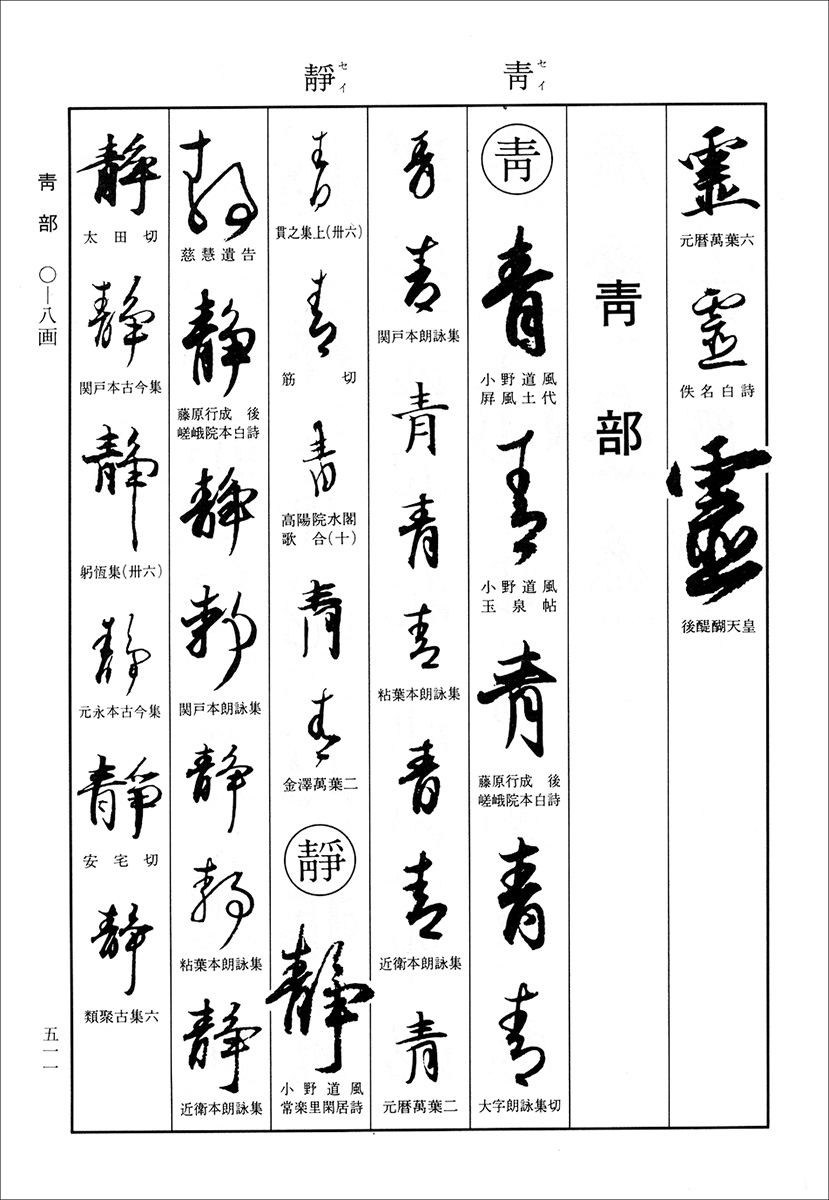 青 セイ
靜 セイ
靈
元暦萬葉六
靈
佚名白詩
靈
後醍醐天皇
靑部
靑
青
小野道風
屛風土代
青
小野道風
玉泉帖
青
藤原行成 後
嵯峨院本白詩
青
青
大字朗詠集切
青
青
関戸本朗詠集
青
青
青
粘葉本朗詠集
青
青
近衛本朗詠集
青
元暦萬葉二
青
貫之集上(卅六)
青
筋切
青
高陽院水閣
歌合(十)
青
青
金澤萬葉二
靜
靜
小野道風
常楽里閑居詩
静
慈慧遺告
静
藤原行成 後
嵯峨院本白詩
静
静
関戸本朗詠集
静
静
粘葉本朗詠集
静
近衛本朗詠集
静
太田切
静
関戸本古今集
静
躬恆集(卅六)
静
元永本古今集
静
安宅切
静
類聚古集六
靑部 〇―八画
五一一